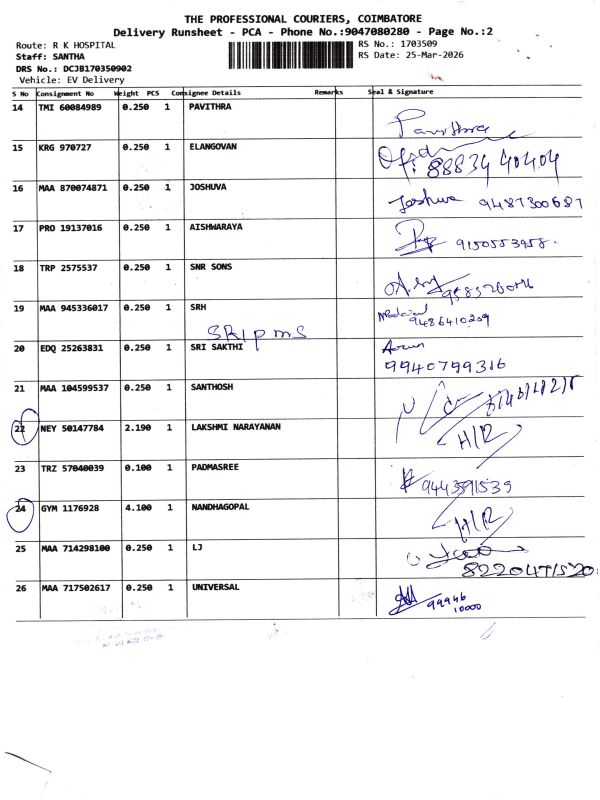 THE PROFESSIONAL COURIERS, COIMBATORE
Delivery Runsheet - PCA - Phone No.:9047080280 - Page No.:2
Route: R K HOSPITAL
RS No.: 1703509
Staff: SANTHA
RS Date: 25-Mar-2026
DRS No.: DCJB170350902
Vehicle: EV Delivery
S No Consignment No Weight PCS Consignee Details Remarks Seal & Signature
14 TMI 60084989 0.250 1 PAVITHRA
Pavithra
15 KRG 970727 0.250 1 ELANGOVAN
88834 40404
16 MAA 870074871 0.250 1 JOSHUVA
Joshua 9487300687
17 PRO 19137016 0.250 1 AISHWARAYA
9150553958
18 TRP 2575537 0.250 1 SNR SONS
19 MAA 945336017 0.250 1 SRH
9486410209
SRI p m s
20 EDQ 25263831 0.250 1 SRI SAKTHI
Arun
9940799316
21 MAA 104599537 0.250 1 SANTHOSH
22 NEY 50147784 2.190 1 LAKSHMI NARAYANAN
H/R
23 TRZ 57040039 0.100 1 PADMASREE
9443591539
24 GYM 1176928 4.100 1 NANDHAGOPAL
H/R
25 MAA 714298100 0.250 1 LJ
8220471520
26 MAA 717502617 0.250 1 UNIVERSAL
99946
10000